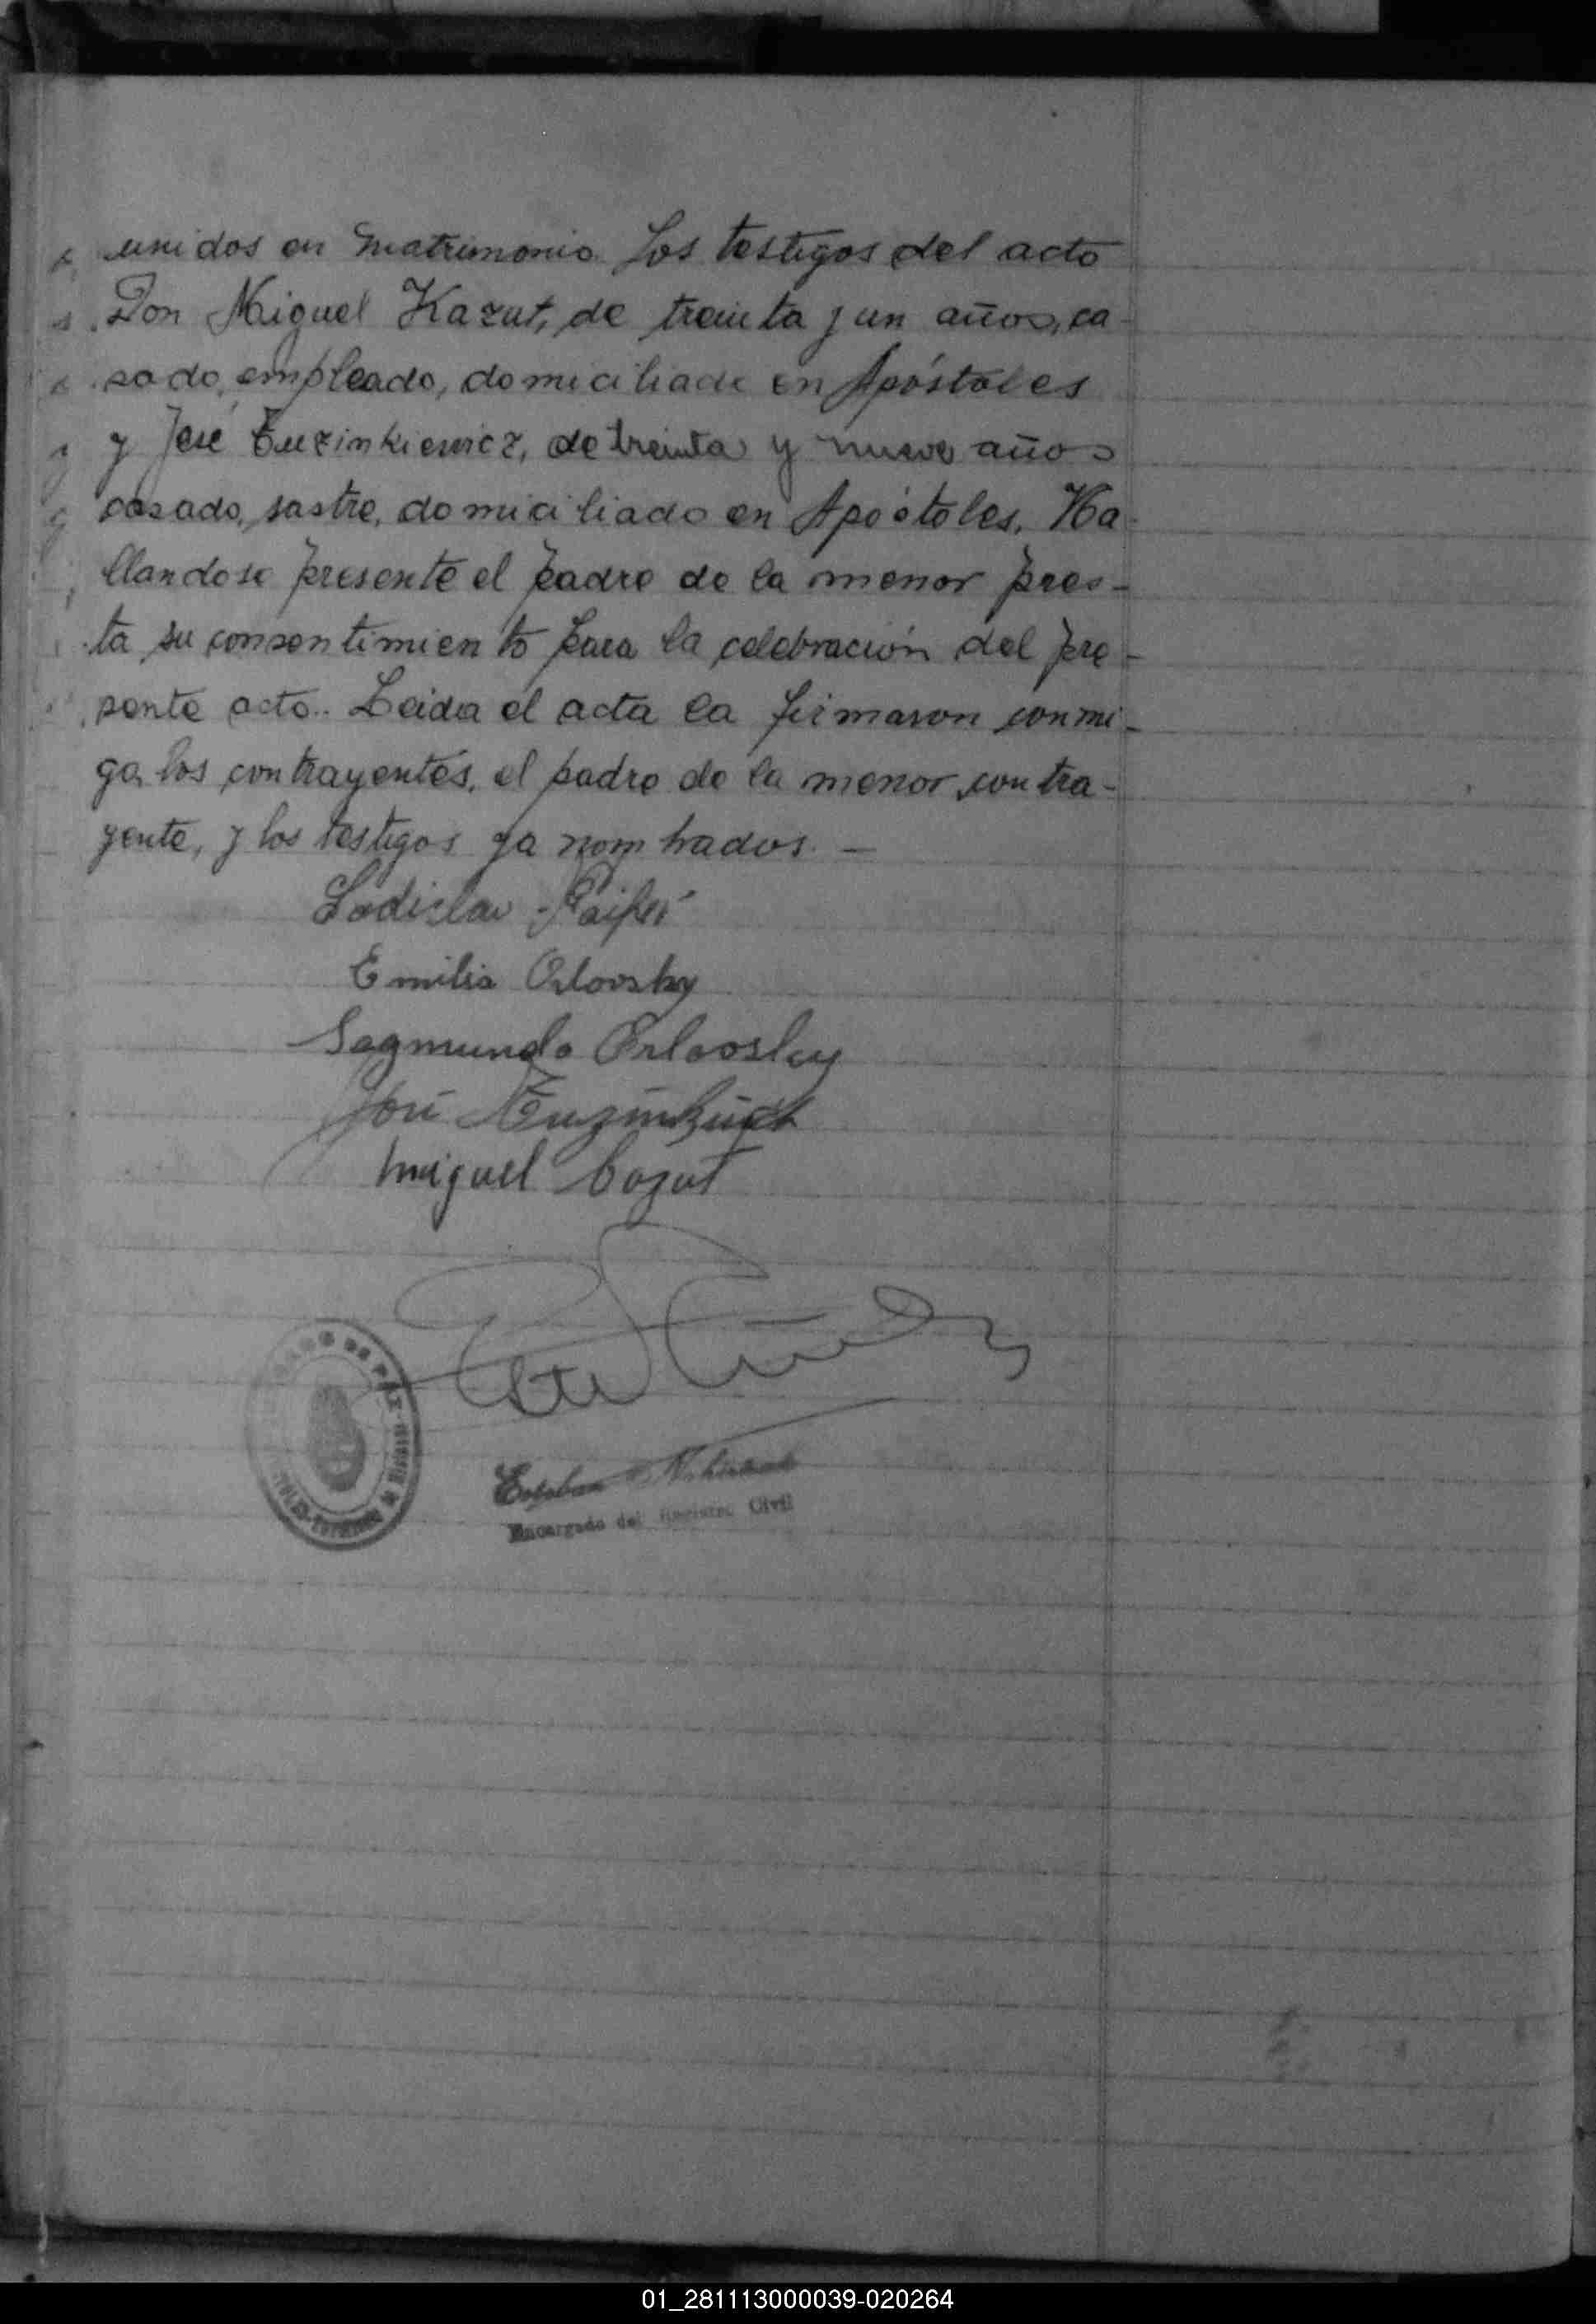 unidos en matrimonio. Los testigos del acto
Don Miguel Kazut, de treinta y un años, ca-
sado, empleado, domiciliado en Apóstoles
y José Tuzinkiewicz, de treinta y nueve años
casado, sastre, domiciliado en Apóstoles. Ha-
llandose presente el padre de la menor pres-
ta su consentimiento para la celebración del pre-
sente acto.. Leida el acta la firmaron conmi-
go, los contrayentes, el padre de la menor contra-
yente, y los testigos ya nombrados. —
Ladislao
Emilia Orlovsky
Segmundo Orlovsky
José
Miguel Cazut
DE PAZ
Esteban
Encargado del Registro Civil
01_281113000039-020264